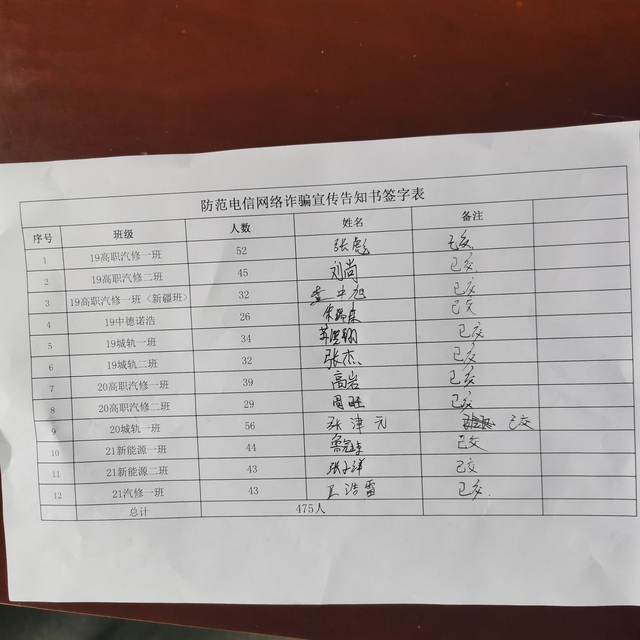 防范电信网络诈骗宣传告知书签字表
序号 班级 人数 姓名 备注
1 19高职汽修一班 52 张彪 已交
2 19高职汽修二班 45 刘尚 已交
3 19高职汽修一班〈新疆班〉 32 李中旭 已交
4 19中德诺浩 26 已交
5 19城轨一班 34 已交
6 19城轨二班 32 张杰 已交
7 20高职汽修一班 39 高岩 已交
8 20高职汽修二班 29 周旺 已交
9 20城轨一班 56 张津元 已交
10 21新能源一班 44 已交
11 21新能源二班 43 张子洋 已交
12 21汽修一班 43 王浩雷 已交
总计 475人